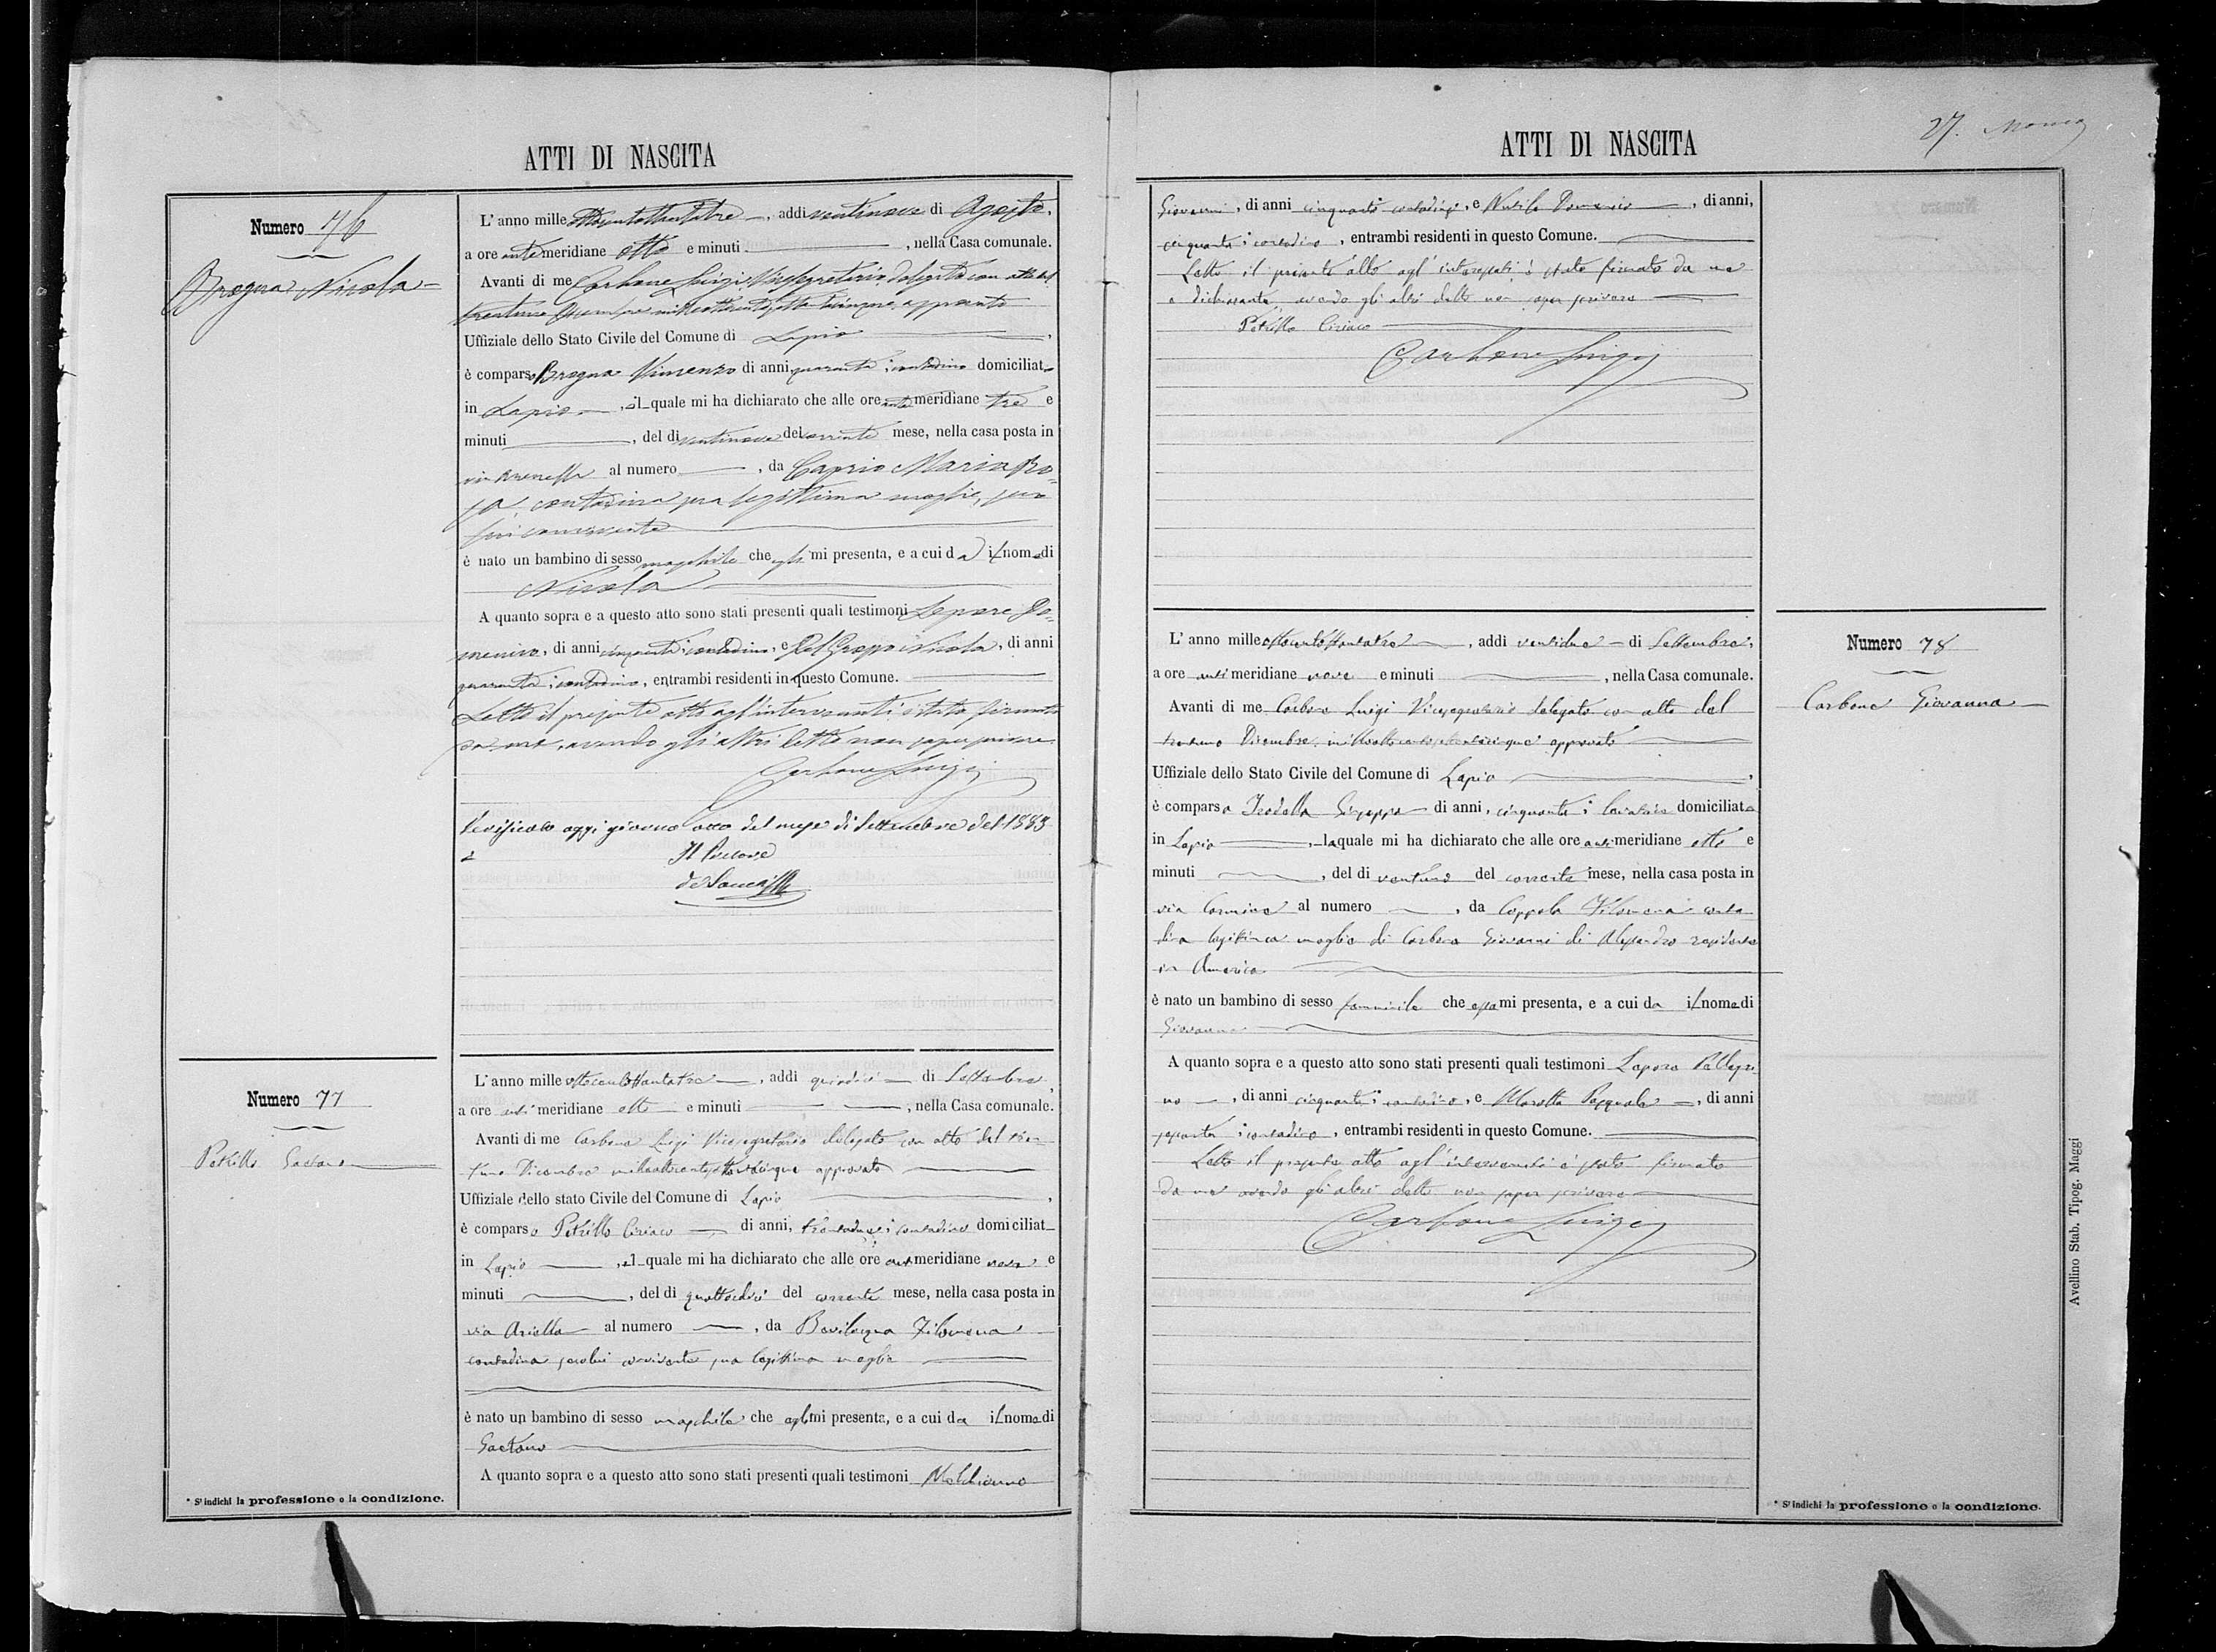 ATTI DI NASCITA
Numero 76
Brogna Nicola
L'anno mille ottocentottantatre, addi ventinove di Agosto,
a ore antimeridiane otto e minuti, nella Casa comunale.
Avanti di me Carbone Luigi Vicesegretario delegato con atto del
trentuno Dicembre milleottocentosettantacinque approvato
Uffiziale dello Stato Civile del Comune di Lapio,
è comparso Brogna Vincenzo di anni quaranta; contadino domiciliato
in Lapio, il quale mi ha dichiarato che alle ore antimeridiane tre e
minuti, del di ventinove del corrente mese, nella casa posta in
via al numero, da Caprio Maria Ro=
sa contadina sua legittima moglie, seco
lui convivente
è nato un bambino di sesso maschile che egli mi presenta, e a cui dà il nome di
Nicola
A quanto sopra e a questo atto sono stati presenti quali testimoni Lepore Do=
menico, di anni cinquanta; contadino, e Del Grosso Nicola, di anni
quaranta; contadino, entrambi residenti in questo Comune.
Letto il presente atto agl'intervenuti è stato firmato
da me, avendo gli altri detto non saper scrivere
Carbone Luigi
Verificato oggi giorno otto del mese di Settembre del 1883
Il Pretore
Numero 77
Petrillo Gaetano
L'anno mille ottocentottantatre, addi quindici di Settembre,
a ore antimeridiane otto e minuti, nella Casa comunale.
Avanti di me Carbone Luigi Vicesegretario delegato con atto del tren
tuno Dicembre milleottocentosettantacinque approvato
Uffiziale dello stato Civile del Comune di Lapio,
è comparso Petrillo Ciriaco di anni, trentadue; contadino domiciliat
in Lapio, il quale mi ha dichiarato che alle ore antimeridiane nove e
minuti, del di quattordici del corrente mese, nella casa posta in
via Ariella al numero, da Bevilacqua Filomena
contadina secolui convivente sua legittima moglie
è nato un bambino di sesso maschile che egli mi presenta, e a cui da il nome di
Gaetano
A quanto sopra e a questo atto sono stati presenti quali testimoni Melchionno
* Si indichi la professione o la condizione.
ATTI DI NASCITA
27.
Giovanni, di anni cinquanta contadino, e Domenico, di anni,
cinquanta; contadino, entrambi residenti in questo Comune.
Letto il presente atto agl'interessati è stato firmato da me
e dichiarante, avendo gli altri detto non saper scrivere
Petrillo Ciriaco
Carbone Luigi
Numero 78
Carbone Giovanna
L'anno mille ottocentottantatre, addi ventidue di Settembre,
a ore antimeridiane nove e minuti, nella Casa comunale.
Avanti di me Carbone Luigi Vicesegretario delegato con atto del
trentuno Dicembre milleottocentosettantacinque approvato
Uffiziale dello Stato Civile del Comune di Lapio,
è comparsa Giuseppa di anni, cinquanta; levatrice domiciliata
in Lapio, la quale mi ha dichiarato che alle ore antimeridiane otto e
minuti, del di ventuno del corrente mese, nella casa posta in
via Carmine al numero, da Coppola Filomena conta
dina legittima moglie di Carbone Giovanni di Alessandro residente
in America
è nato un bambino di sesso femminile che essa mi presenta, e a cui da il nome di
Giovanna
A quanto sopra e a questo atto sono stati presenti quali testimoni Lepore Pellegri
no, di anni cinquanta; contadino, e Marotta Pasquale, di anni
sessanta; contadino, entrambi residenti in questo Comune.
Letto il presente atto agl'intervenuti è stato firmato
da me avendo gli altri detto non saper scrivere
Carbone Luigi
* Si indichi la professione o la condizione.
Avellino Stab. Tipog. Maggi